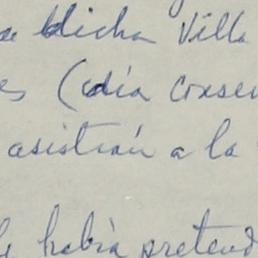 dicha Villa
es (día conse
asistían a la
había pretend